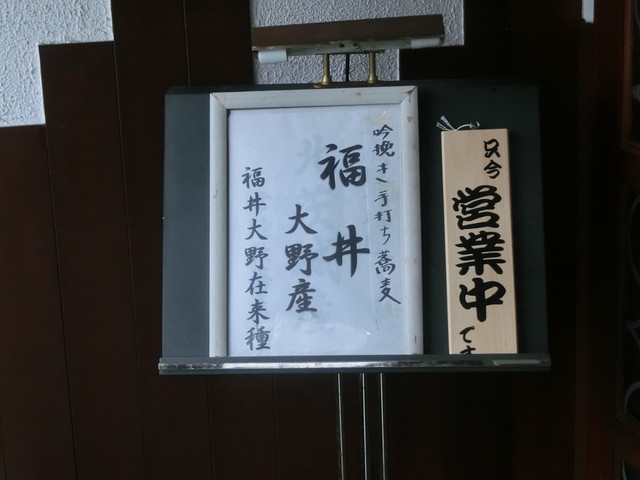 吟挽き手打ち蕎麦
福井
大野産
福井大野在来種
只今
営業中
です